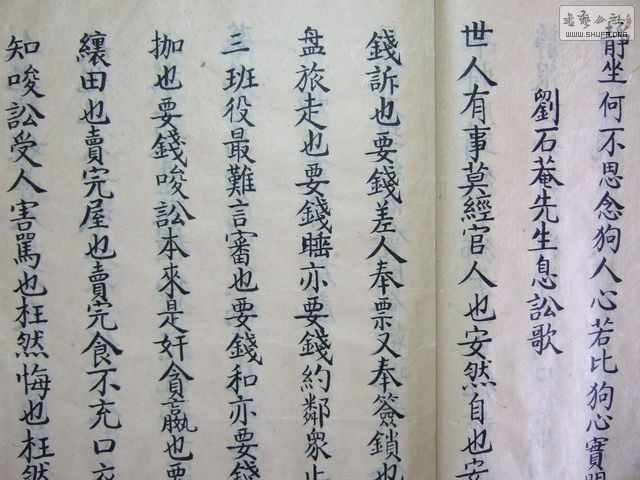 靜坐何不思念狗人心若比狗心實
劉石菴先生息訟歌
世人有事莫經官人也安然自也安
錢訴也要錢差人奉票又奉簽鎖也
盤旅走也要錢睡亦要錢約鄰眾止
三班役最難言審也要錢和亦要錢
枷也要錢唆訟本來是奸貪贏也要
纕田也賣完屋也賣完食不充口衣
知唆訟受人害罵也枉然悔也枉然
書藝公社
WWW.SHUFA.ORG